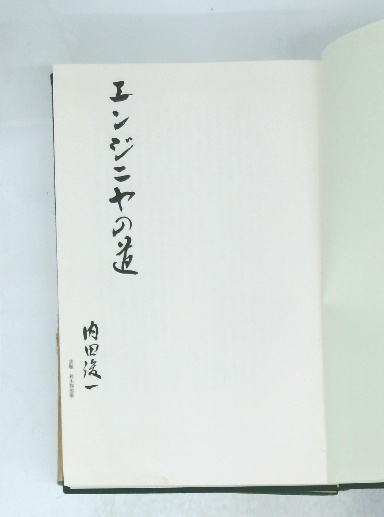 エンジニヤの道
内田俊一